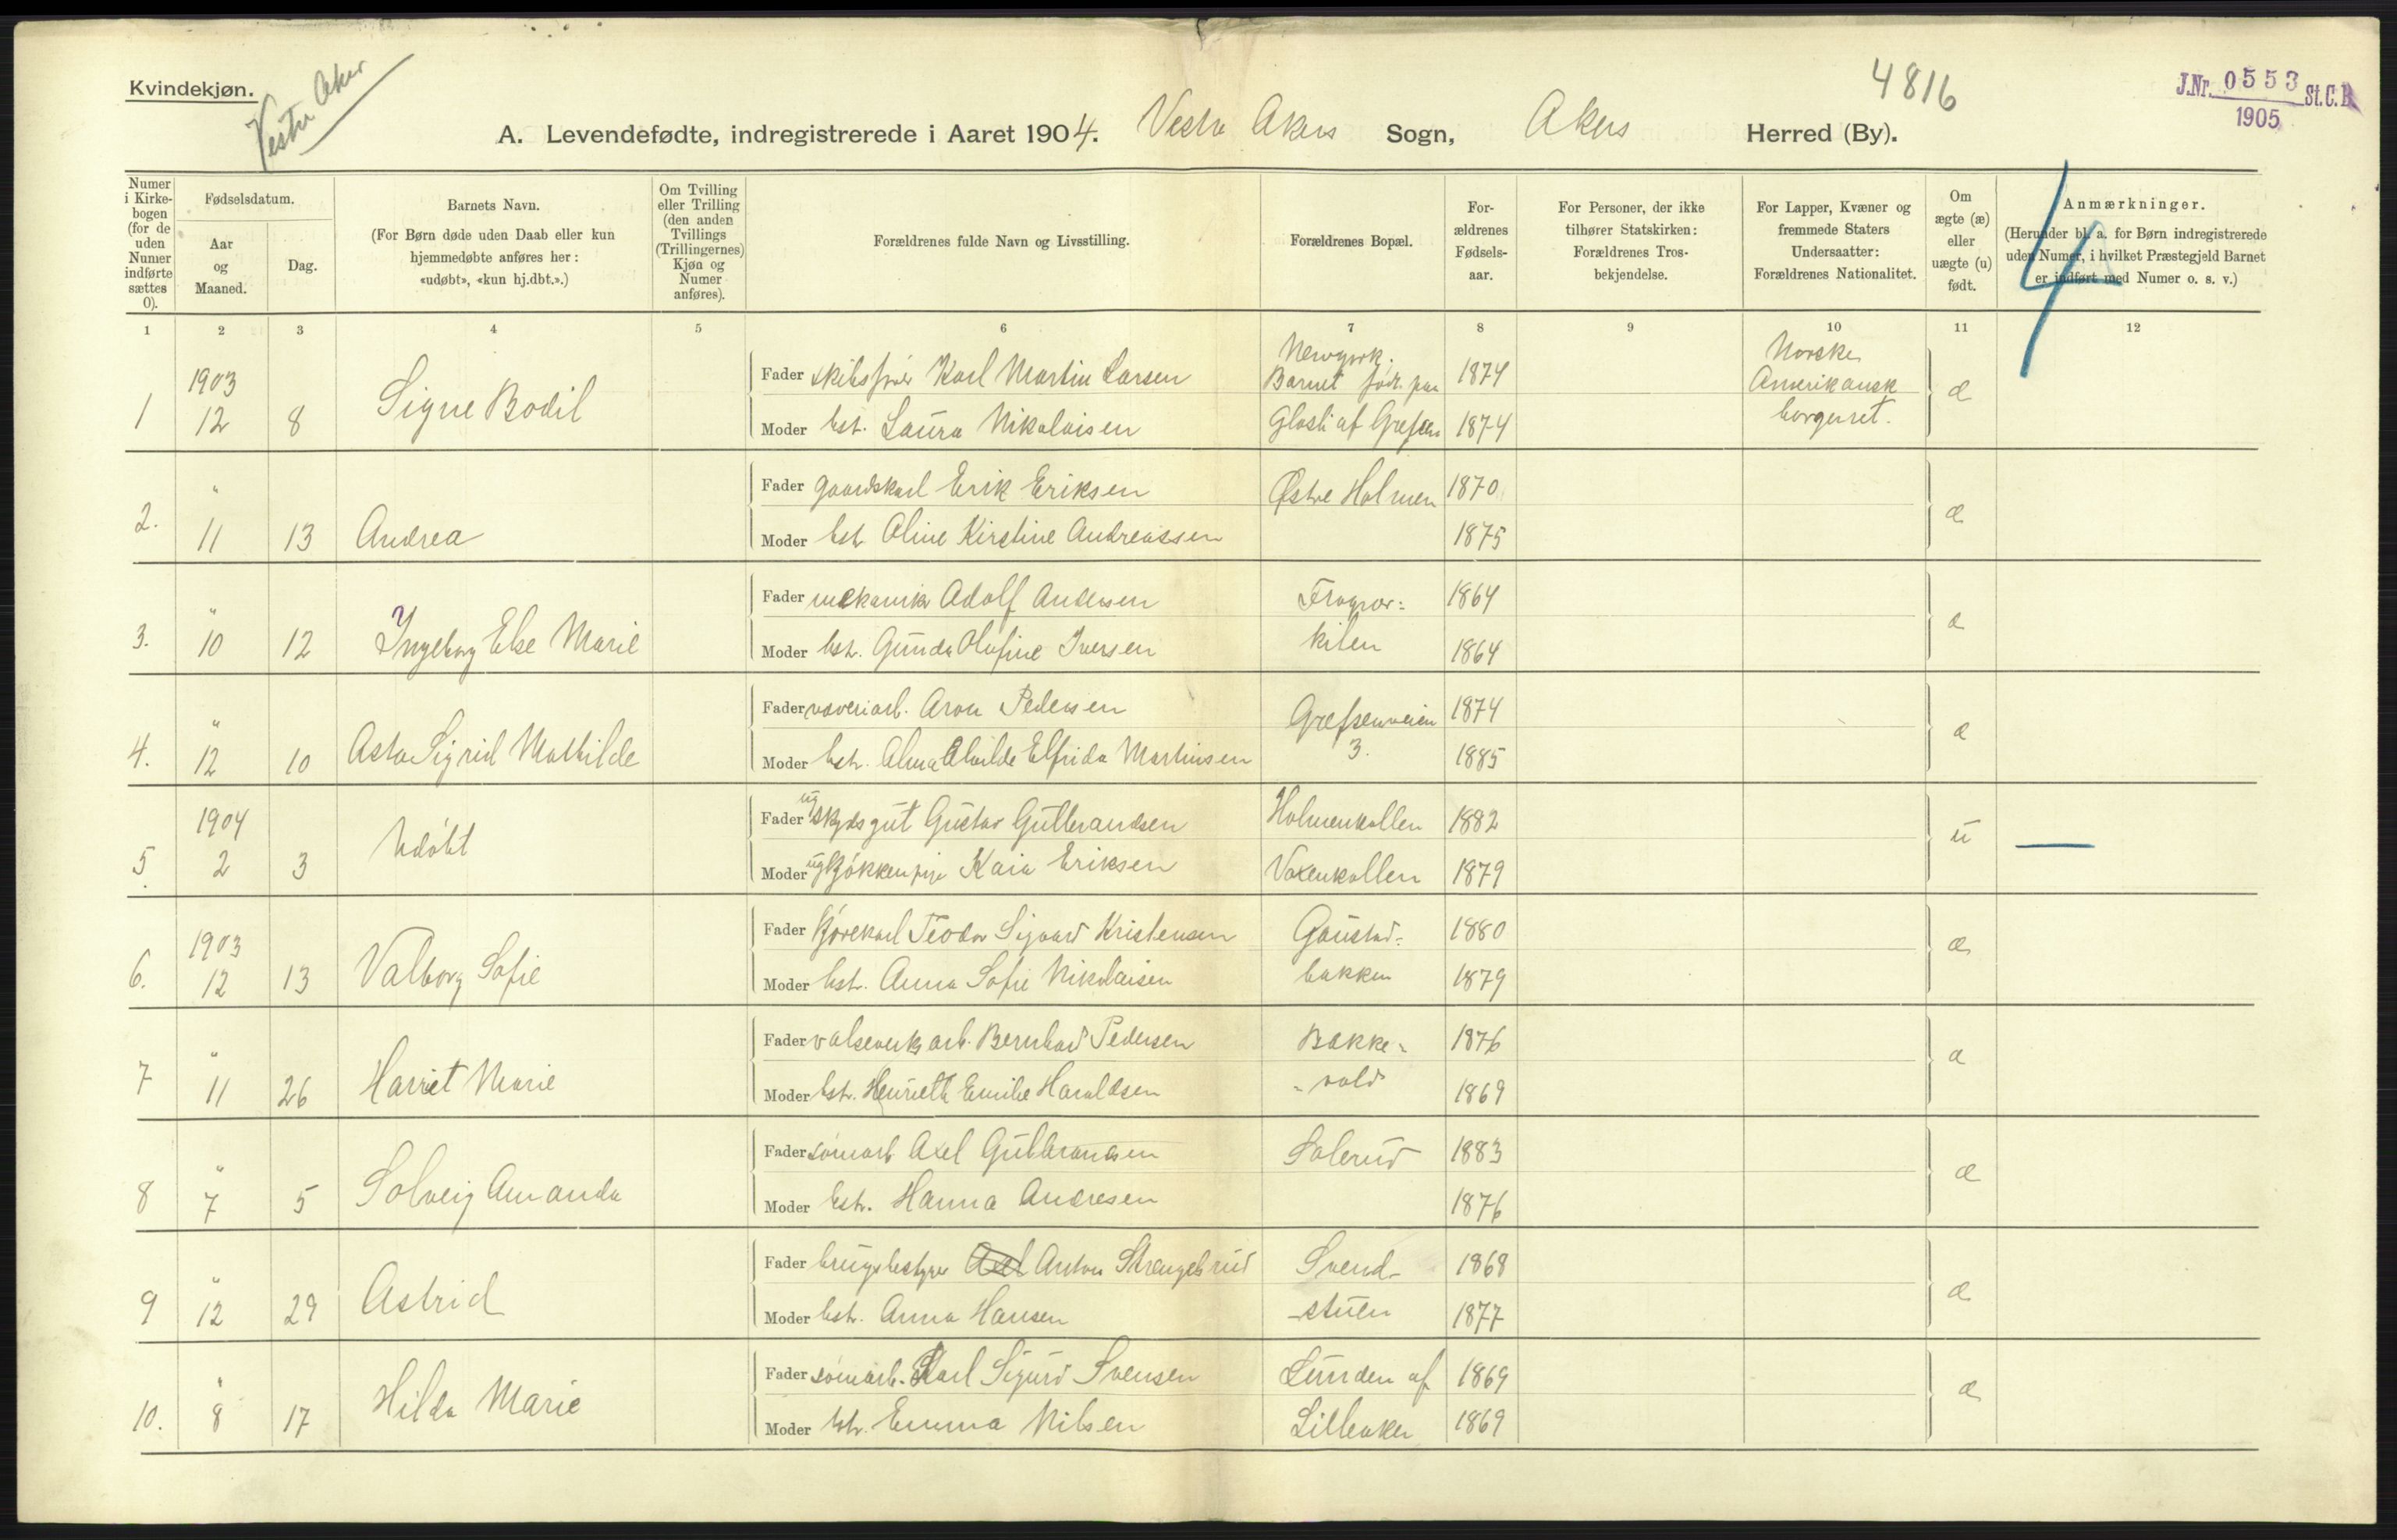 Kvindekjøn.
Vestre Aker
4816
J.Nr. 0553 St.C.B
1905
A. Levendefødte, indregistrerede i Aaret 1904. Vestre Akers Sogn, Akers Herred (By).
Numer i Kirkebogen (for de uden Numer indførte sættes 0).
Fødselsdatum.
Aar og Maaned.
Dag.
Barnets Navn.
(For Børn døde uden Daab eller kun hjemmedøbte anføres her: «udøbt», «kun hj.dbt.».)
Om Tvilling eller Trilling (den anden Tvillings (Trillingernes) Kjøn og Numer anføres).
Forældrenes fulde Navn og Livsstilling.
Forældrenes Bopæl.
Forældrenes Fødselsaar.
For Personer, der ikke tilhører Statskirken: Forældrenes Trosbekjendelse.
For Lapper, Kvæner og fremmede Staters Undersaatter: Forældrenes Nationalitet.
Om ægte (æ) eller uægte (u) født.
Anmærkninger.
(Herunder bl. a. for Børn indregistrerede uden Numer, i hvilket Præstegjeld Barnet er indført med Numer o. s. v.)
4
1 2 3 4 5 6 7 8 9 10 11 12
1 1903 12 8 Signe Bodil
Fader skibsfører Karl Martin Larsen Newyork. Barnet født paa 1874 Norske Amerikansk æ
Moder hst. Laura Nikolaisen af Grefsen 1874 borgerret.
2. " 11 13 Andrea
Fader gaardskarl Erik Eriksen Østre Holmen 1870 æ
Moder hst. Oline Kirstine Andreassen 1875
3. " 10 12 Ingeborg Else Marie
Fader mekaniker Adolf Andersen Frogner: 1864 æ
Moder hst. Gunda Olufine Iversen kilen 1864
4. " 12 10 Asta Sigrid Mathilde
Fader væveriarb. Aron Pedersen Grefsenveien 1874 æ
Moder hst. Alma Alvilde Elfrida Martinsen 3. 1885
5. 1904 2 3 Udøbt
Fader ug skydsgut Gustav Gulbrandsen Holmenkollen 1882 u —
Moder ug kjøkkenpige Kaia Eriksen Voxenkollen 1879
6. 1903 12 13 Valborg Sofie
Fader kjørekarl Teodor Sigvard Kristensen Gaustad- 1880 æ
Moder hst. Anna Sofie Nikolaisen bakken 1879
7 " 11 26 Harriet Marie
Fader valseverksarb. Bernhard Pedersen Bakke- 1876 æ
Moder hst. Henriette Emilie Haraldsen -vold 1869
8 " 7 5 Solveig Amanda
Fader Axel Gulbrandsen Solerud 1883 æ
Moder hst. Hanna Andresen 1876
9 " 12 29 Astrid
Fader brugsbestyrer Anton Strengelsrud Svend- 1868 æ
Moder hst. Anna Hansen -stuen 1877
10. " 8 17 Hilda Marie
Fader Karl Sigurd Svensen Lunden af 1869 æ
Moder hst. Emma Nilsen Lilleaker 1869